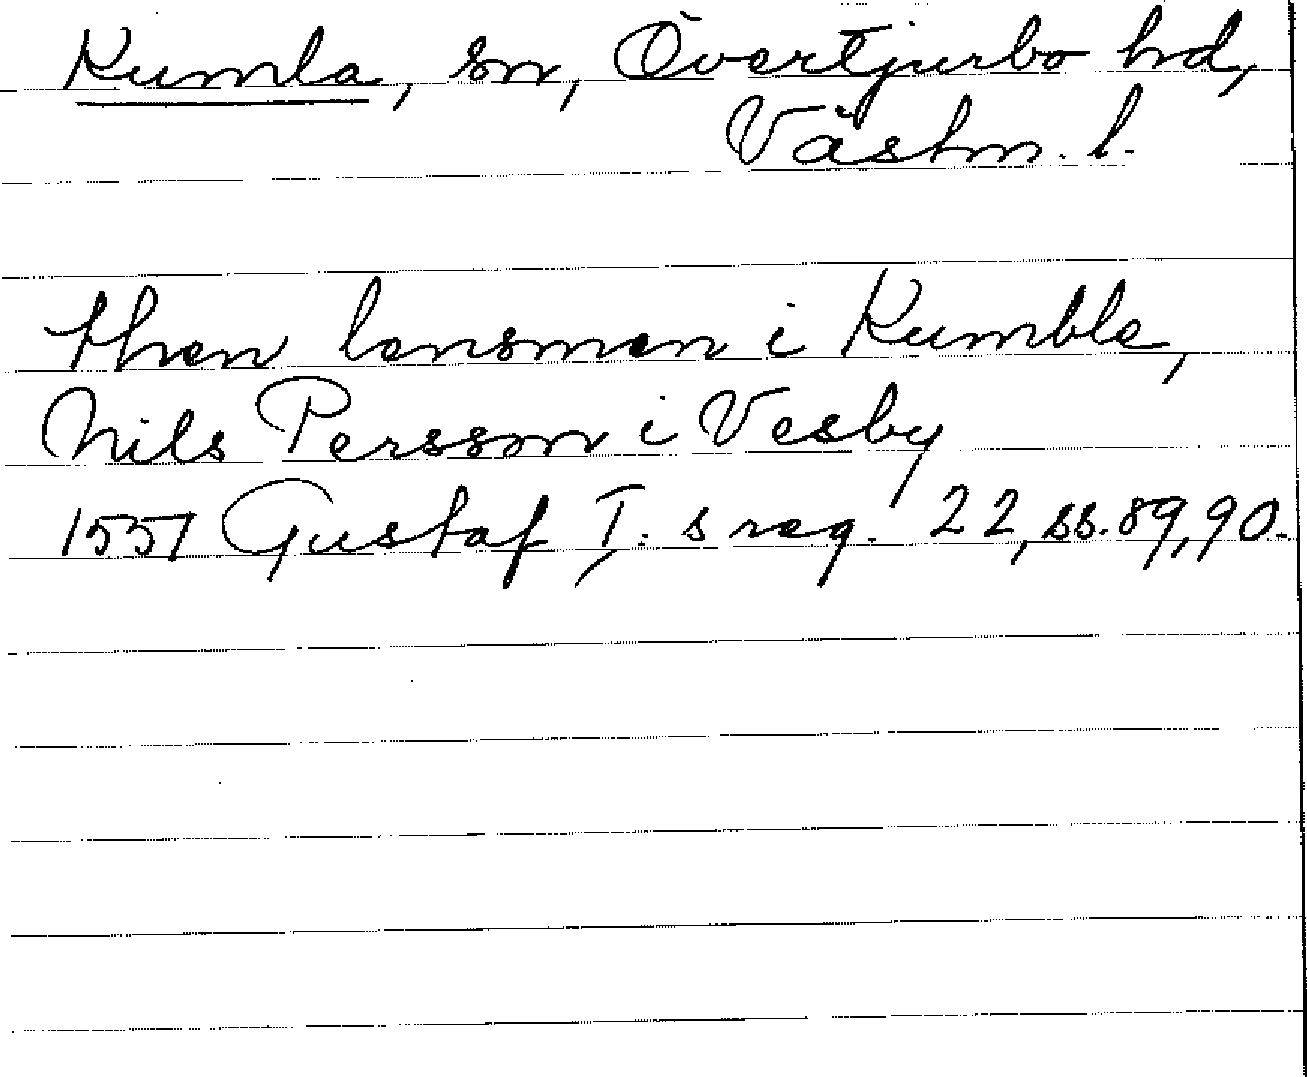 Kumla, sn, Övertjurbo hd,
Västm. l.
then lensmen i Kumble,
Nils Persson i Vesby
1551 Gustaf I:s reg. 22, ss. 89, 90.